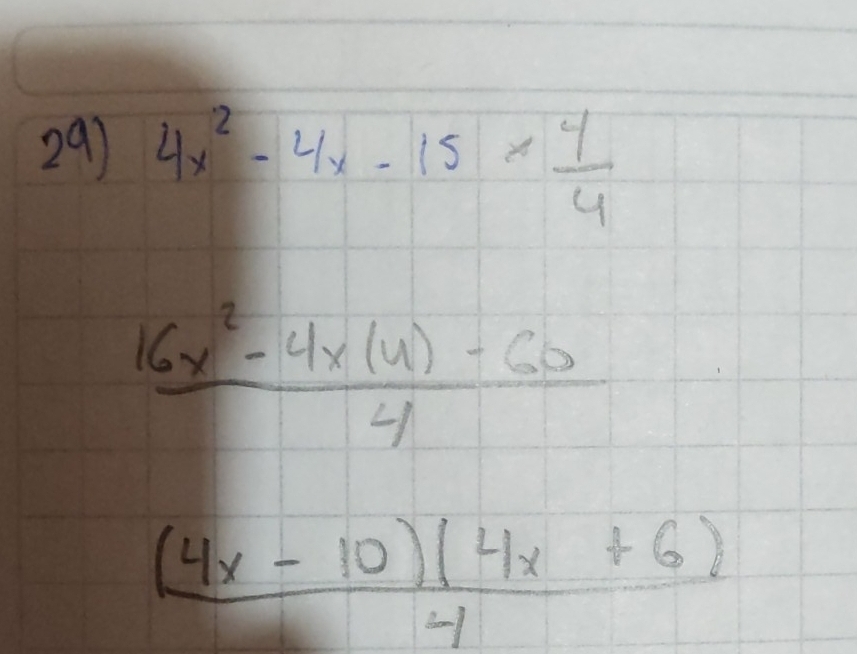 29) 4x² - 4x - 15 × 4/4
16x² - 4x(4) - 60
4
(4x - 10)(4x + 6)
4